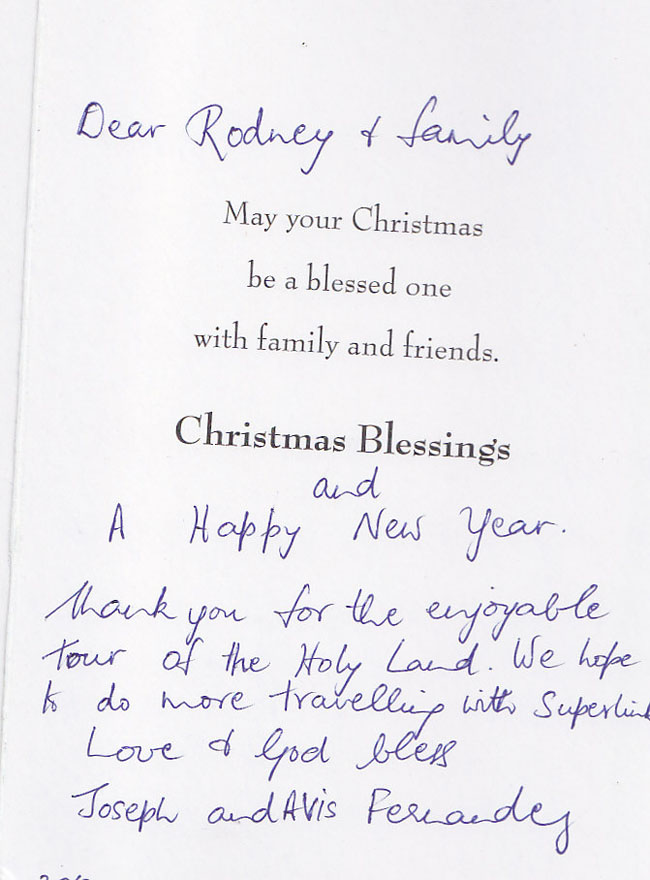 Dear Rodney & family
May your Christmas
be a blessed one
with family and friends.
Christmas Blessings
and
A Happy New Year.
Thank you for the enjoyable
tour of the Holy Land. We hope
to do more travelling with Superlink
Love & God bless
Joseph and Avis Fernandes